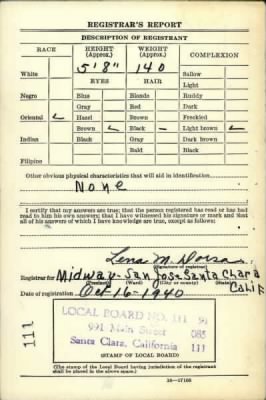 REGISTRAR'S REPORT
DESCRIPTION OF REGISTRANT
RACE HEIGHT (Approx.) WEIGHT (Approx.) COMPLEXION
White 5'8" 140 Sallow
EYES HAIR Light
Negro Blue Blonde Ruddy
Gray Red Dark
Oriental ✓ Hazel Brown Freckled
Brown ✓ Black ✓ Light brown ✓
Indian Black Gray Dark brown
Bald Black
Filipino
Other obvious physical characteristics that will aid in identification
None
I certify that my answers are true; that the person registered has read or has had
read to him his own answers; that I have witnessed his signature or mark and that
all of his answers of which I have knowledge are true, except as follows:
Lena M.
(Signature of registrar)
Registrar for Midway-San Jose-Santa Clara
(Precinct) (Ward) (City or county) (State)
Calif
Date of registration Oct-16-1940
LOCAL BOARD NO. 111
991 Main Street 085
Santa Clara, California 111
111
(STAMP OF LOCAL BOARD)
(The stamp of the Local Board having jurisdiction of the registrant
shall be placed in the above space.)
16—17105